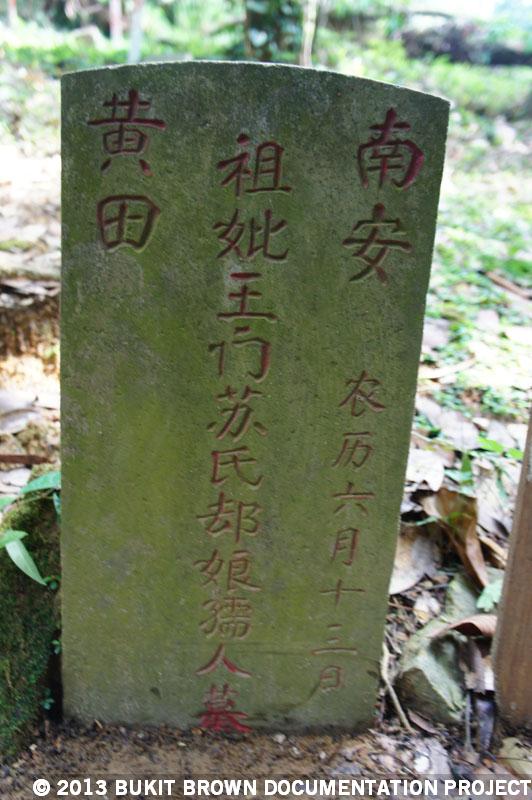 南安
农历六月十三日
祖妣王门苏氏却娘孺人墓
黄田
© 2013 BUKIT BROWN DOCUMENTATION PROJECT